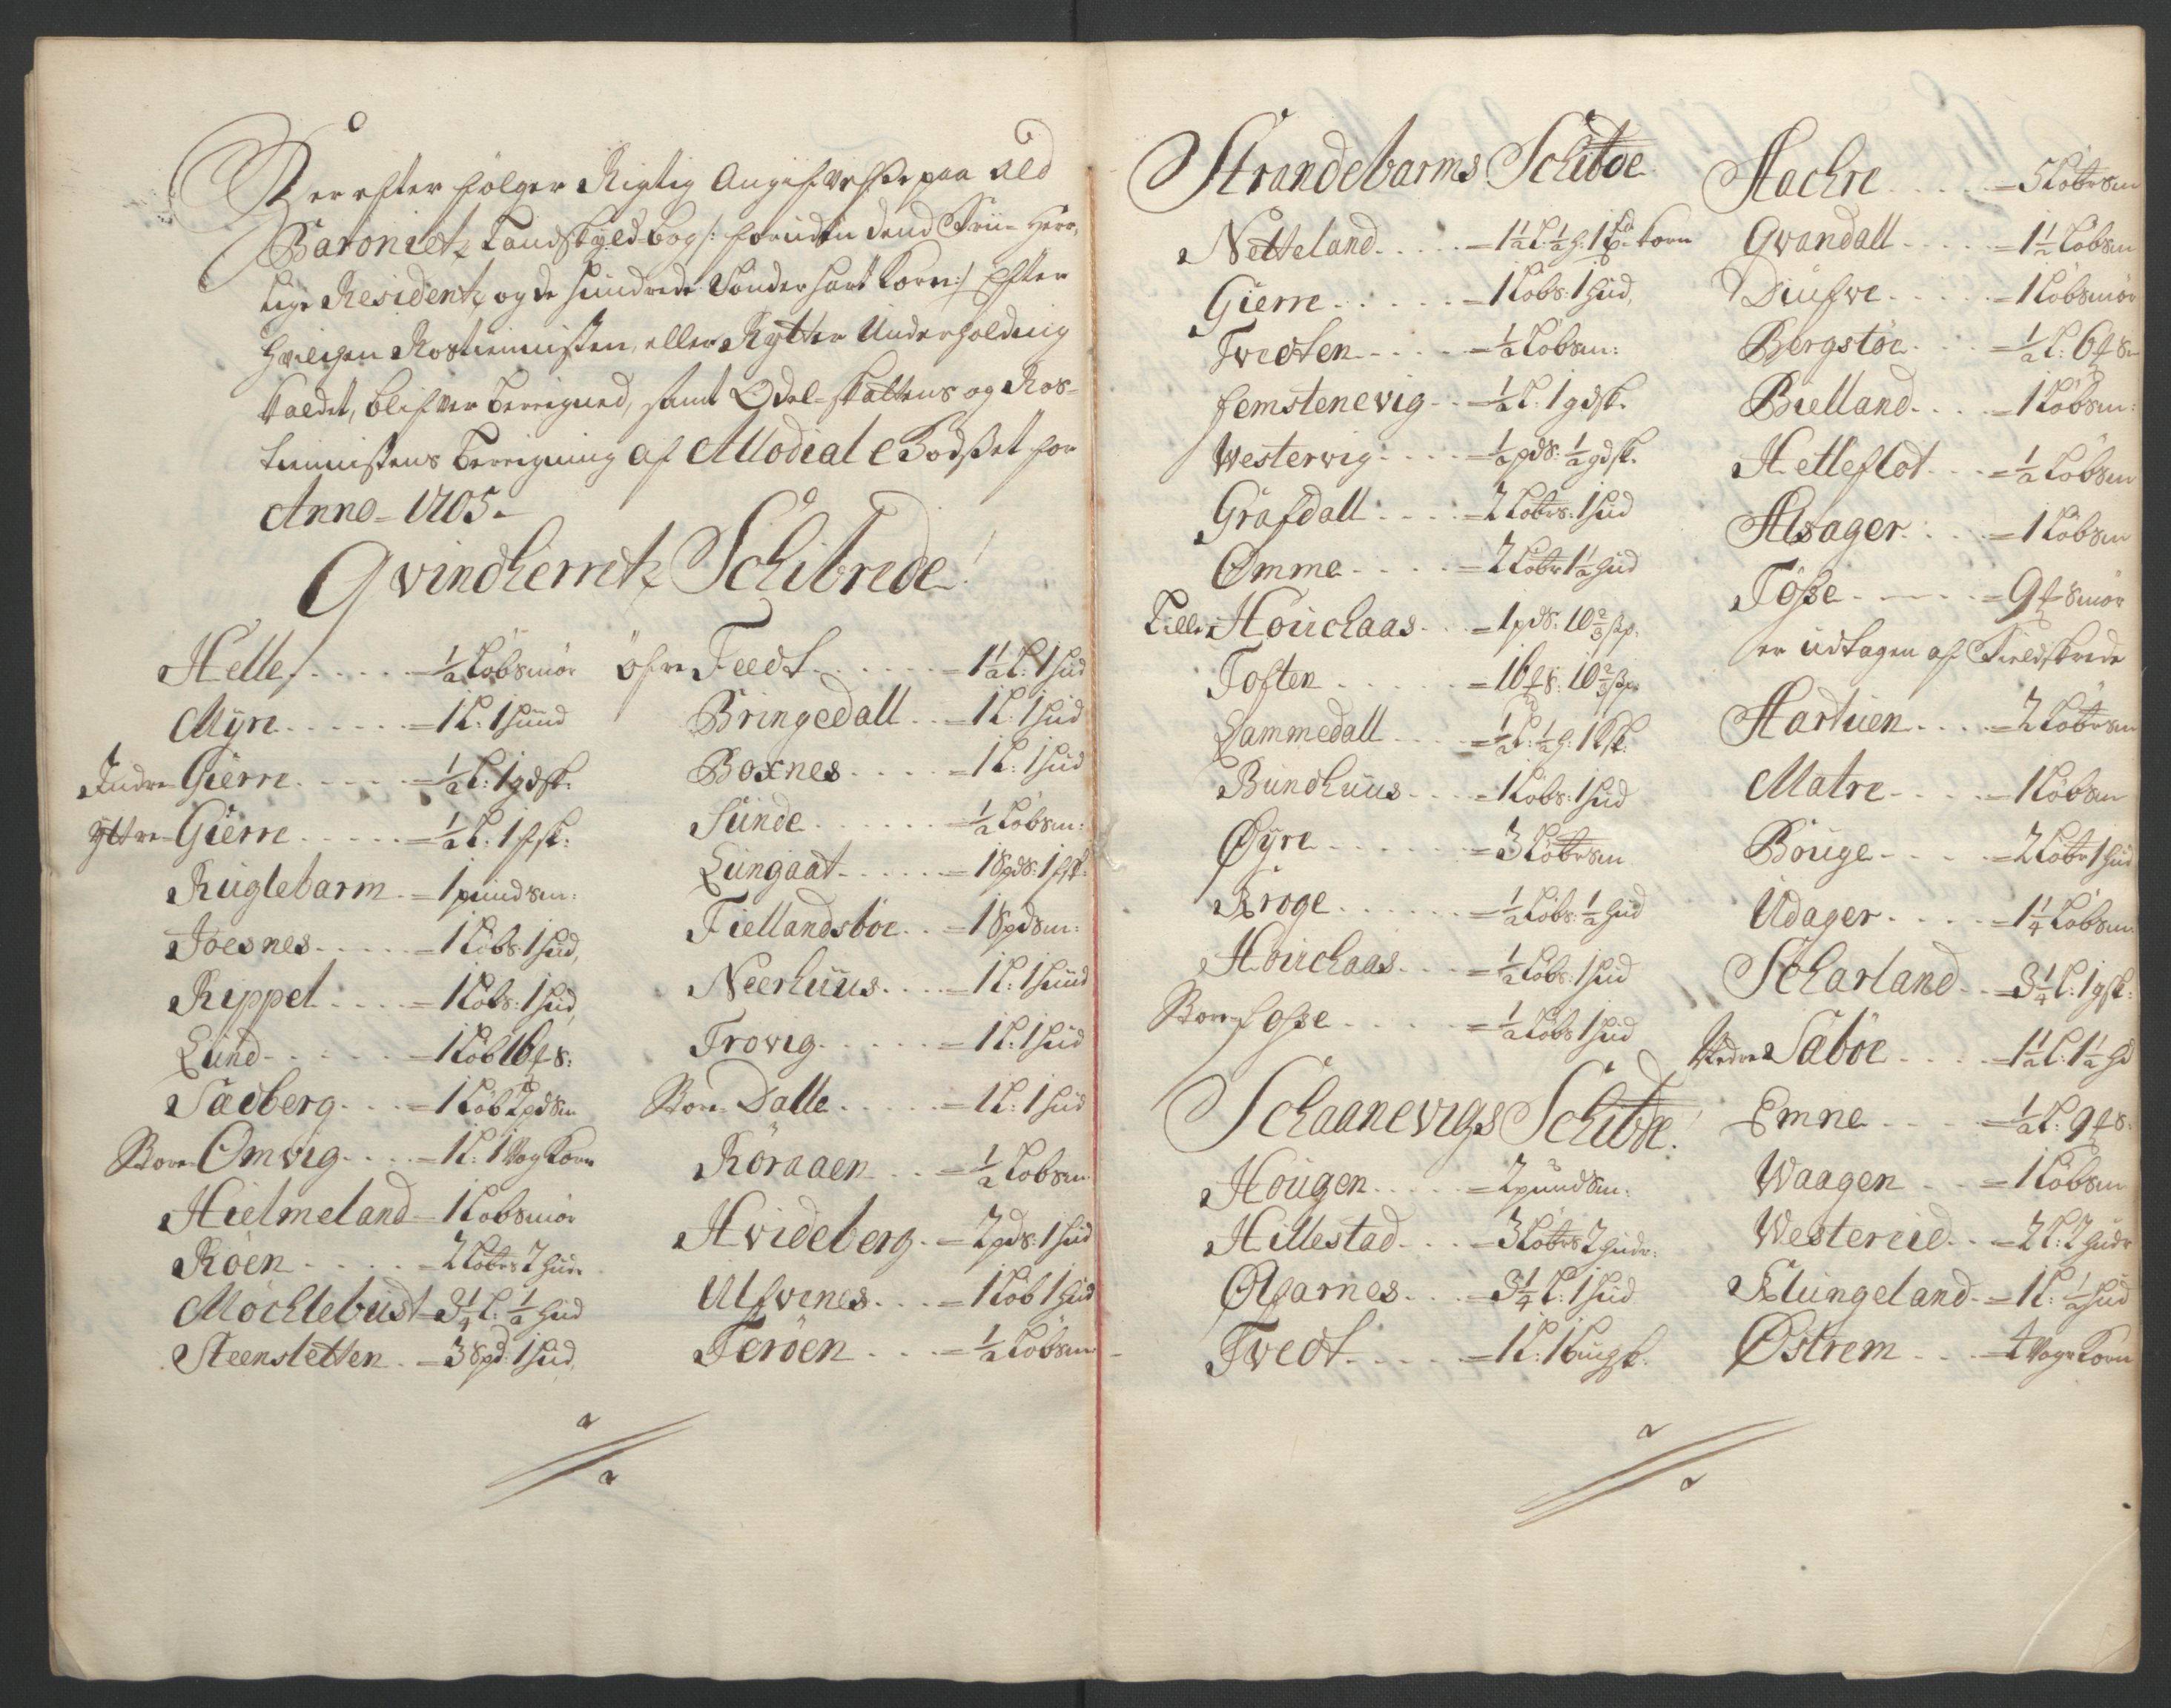 Her efter følger Rigtig Angifvelse paa ald
Baroniets Landskyld-bog /: foruden dend Frii-Herr,
lige Residentz og de hundrede Tønder hart Korn :/ Efter
hvilchen Rostienisten, eller Rytter Underholdning
betalet, blifver beregned, samt Odel-skattens og Ros-
tienistens beregning af Allodial Godset for
Anno 1705
Qvindherretz Schibrede
Helle = 1/2 Løb smør
Myre = 1 L: 1 huud
Indre Gierre = 1/2 L: 1 gdsk:
Yttre Gierre = 1/2 L: 1 fsk:
Ruglebarm = 1 pund sm:
Joesnes = 1 Løb s: 1 hud,
Rippel = 1 Løb s: 1 hud,
Lund = 1 Løb 16 s:
Sæberg = 1 Løb 2 pd sm
Store Omvig = 1 L: 1 Vog Korn
Hielmeland = 1 Løb smør
Röen = 2 Løber 2 huder
Möchlebust = 3 1/4 L: 1/2 hud
Steensletten = 3 Spd: 1 hud,
öfre Feedt = 1 1/2 L: 1 hud
Bringedall = 1 L: 1 hud
Boxnes = 1 L: 1 hud
Sunde = 1/2 Løb sm:
Lungaat = 1 Spd s: 1 fsk:
Fiellandsböe = 1 Spd sm:
Neerhuus = 1 L: 1 huud
Trovig = 1 L: 1 hud
Store Dalle = 1 L: 1 hud
Röraaen = 1/2 Løb sm
Hvideberg = 2 pd s: 1 hud
Ulfvenes = 1 Løb 1 hud
Teröen = 1/2 Løb sm
Strandebarms Schibde
Netteland = 1 1/2 L: 1/2 h: 1 korn
Gierre = 1 Løb s: 1 hud,
Tvedten = 1/2 Løb sm:
femstenevig = 1/2 L: 1 gdsk:
Westervig = 1/2 pd s: 1/2 gdsk.
Grafdall = 2 Løber s: 1 hud
Omme = 2 Løber 1 1/2 hud
Lille Houchaas = 1 pd s: 10 2/3
Toften = 16 s: 10 2/3
Lammedall = 1/2 L: 1/2 h: 1 ksk:
Bundhuus = 1 Løb s: 1 hud
Øyre = 3 Løber sm
Kroge = 1/2 Løb s: 1/2 hud
Houchaas = 1/2 Løb s: 1 hud
Store fosse = 1/2 Løb s 1 hud
Schaanevigs Schibde:
Hougen = 2 pund sm:
Hillestad = 3 Løber s 2 huder:
Ølfarnes = 3 1/4 L: 1 hud
Tvedt = 1 L: 1 bugsk:
Aachre = 5 Løber sm
Qvandall = 1 1/2 Løb sm
Diufve = 1 Løb smør
Bergstöe = 1/2 L: 6 sm
Bielland = 1 Løb sm:
Helleflot = 1/2 Løb sm
Alsager = 1 Løb sm
Tösse = 9 smør
er udtagen af Fieldskrede
Hartuen = 2 Løber sm
Matre = 1 Løb sm
Bouge = 2 Løber 1 hud
Udager = 1 1/4 Løb sm
Scharland = 3 1/4 L: 1 gsk:
Nedre Saböe = 1 1/2 L: 1 1/2 hd
Emne = 1/2 L: 9 s:
Waagen = 1 Løb sm
Westereid = 2 L: 2 huder
Klungeland = 1 L: 1/2 hud
Østrem = 4 Voger Korn